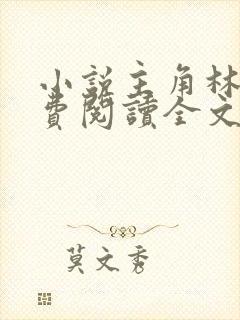 小說主角林
費閱讀全文
莫文秀